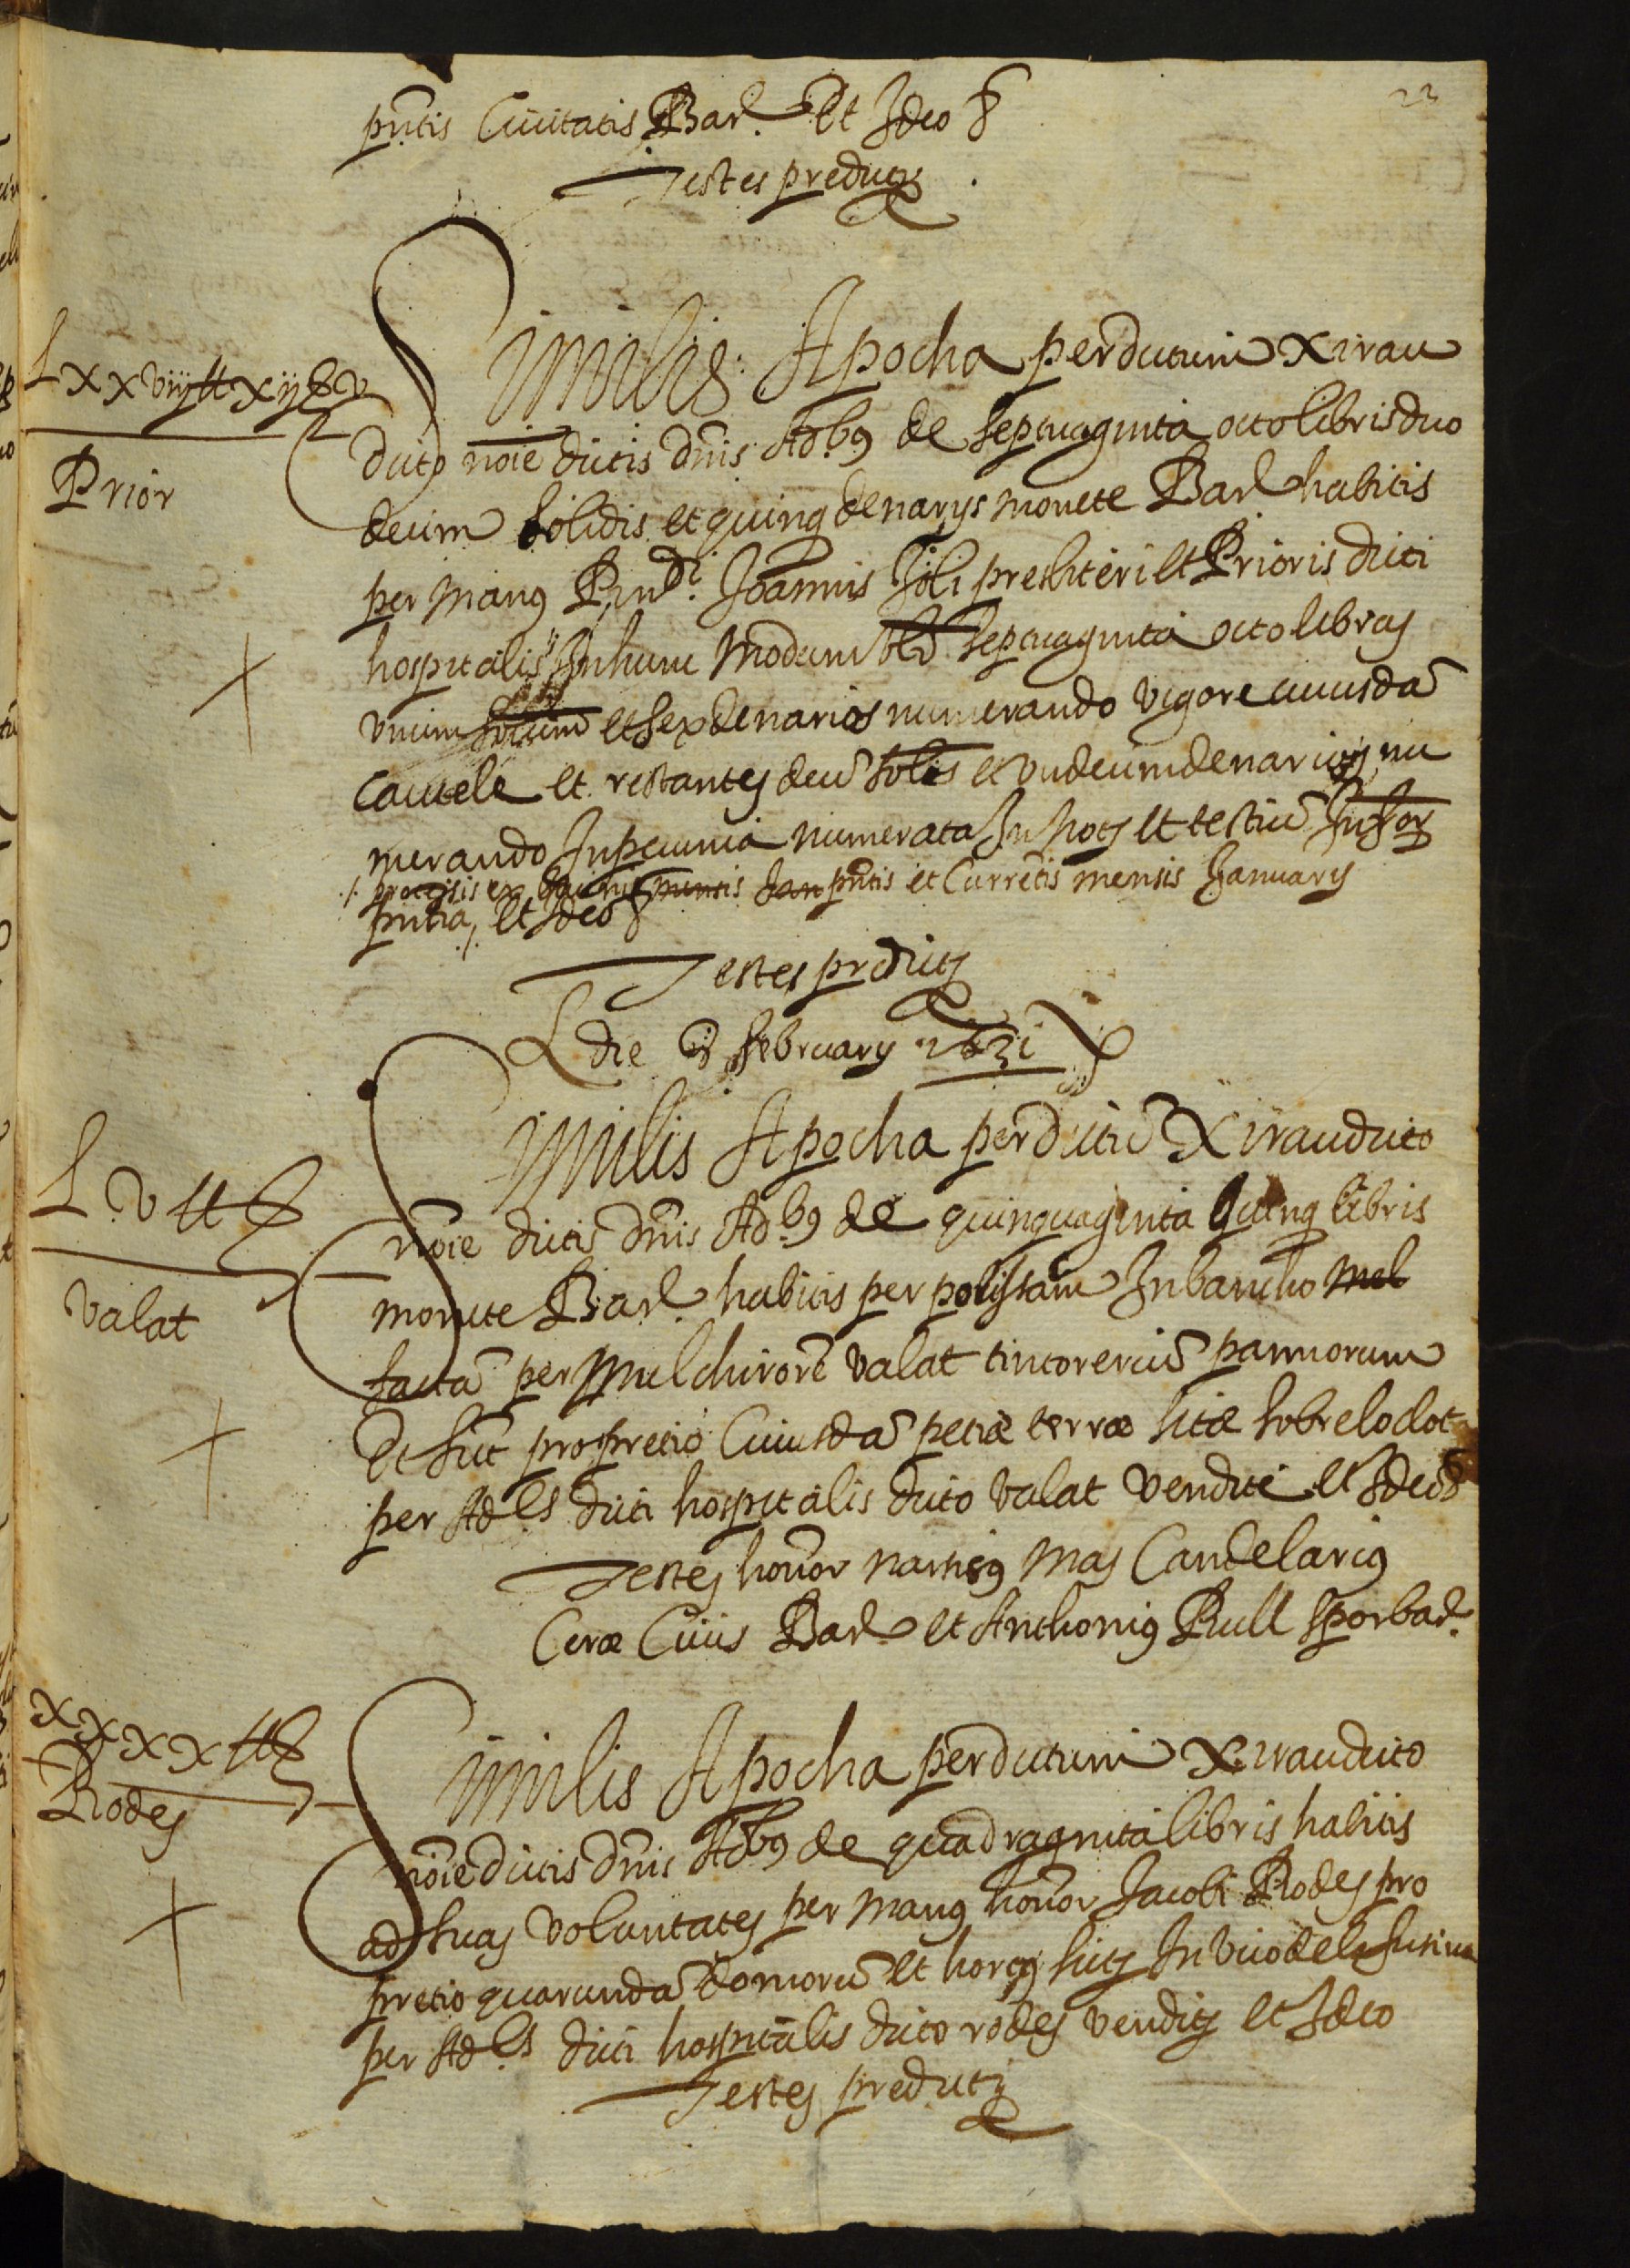 23
pntis Civitatis Bar. Et Ideo &
Testes predicti
Similis Apocha per dictum Xirau
LXXviij ll xij s v
Prior
dicto noie dictis dnis Adbs de septuaginta octo libris duo
decim solidis et quinq denarijs monete Bar habitis
per manus Rndi Joannis Soli presbiteri et Prioris dicti
hospitalis In hunc modum septuaginta octo libras
unum et sex denarios numerando vigore cuiusdã
Cautele et restantes decẽ solis et undecim denarios nu
merando In pecunia numerata In not et testiũ Infror
processis ex mensis Jan pntis et Currẽtis mensis Januarij
pntia, et Ideo &
Testes predicti
die 3 februarij 1631
Similis Apocha per dictũ Xirau dicto
L v ll
Valat
noie dictis dnis Adbs de quinquaginta quinq libris
monete Bar. habitis per polissam In bancho mel
factã per Melchiorẽ Valat tintorerium pannorum
Et sũt pro pretio Cuiusdã petiæ terræ sitæ sobre lo clot
per Ades dicti hospitalis dicto Valat vendite et Ideo &
Testes honor Narcisus Mas Candelarius
Ceræ Civis Bar et Anthonius Rull spor bar.
Similis Apocha per dictum Xirau dicto
XXXX ll
Rodes
noie dictis dnis Adbs de quadraginta libris habitis
ad suas voluntates per manus honor Jacobi Rodes pro
pretio quarundã domorũ et horts sitis In vico de la fusina
per Ades dicti hospitalis dicto rodes venditis et Ideo
Testes predicti